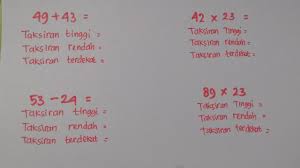 49 + 43 =
Taksiran tinggi =
Taksiran rendah =
Taksiran terdekat =
42 x 23 =
Taksiran Tinggi =
Taksiran rendah =
Taksiran terdekat =
53 - 24 =
Taksiran tinggi =
Taksiran rendah =
Taksiran terdekat =
89 x 23 =
Taksiran Tinggi =
Taksiran rendah =
Taksiran terdekat =